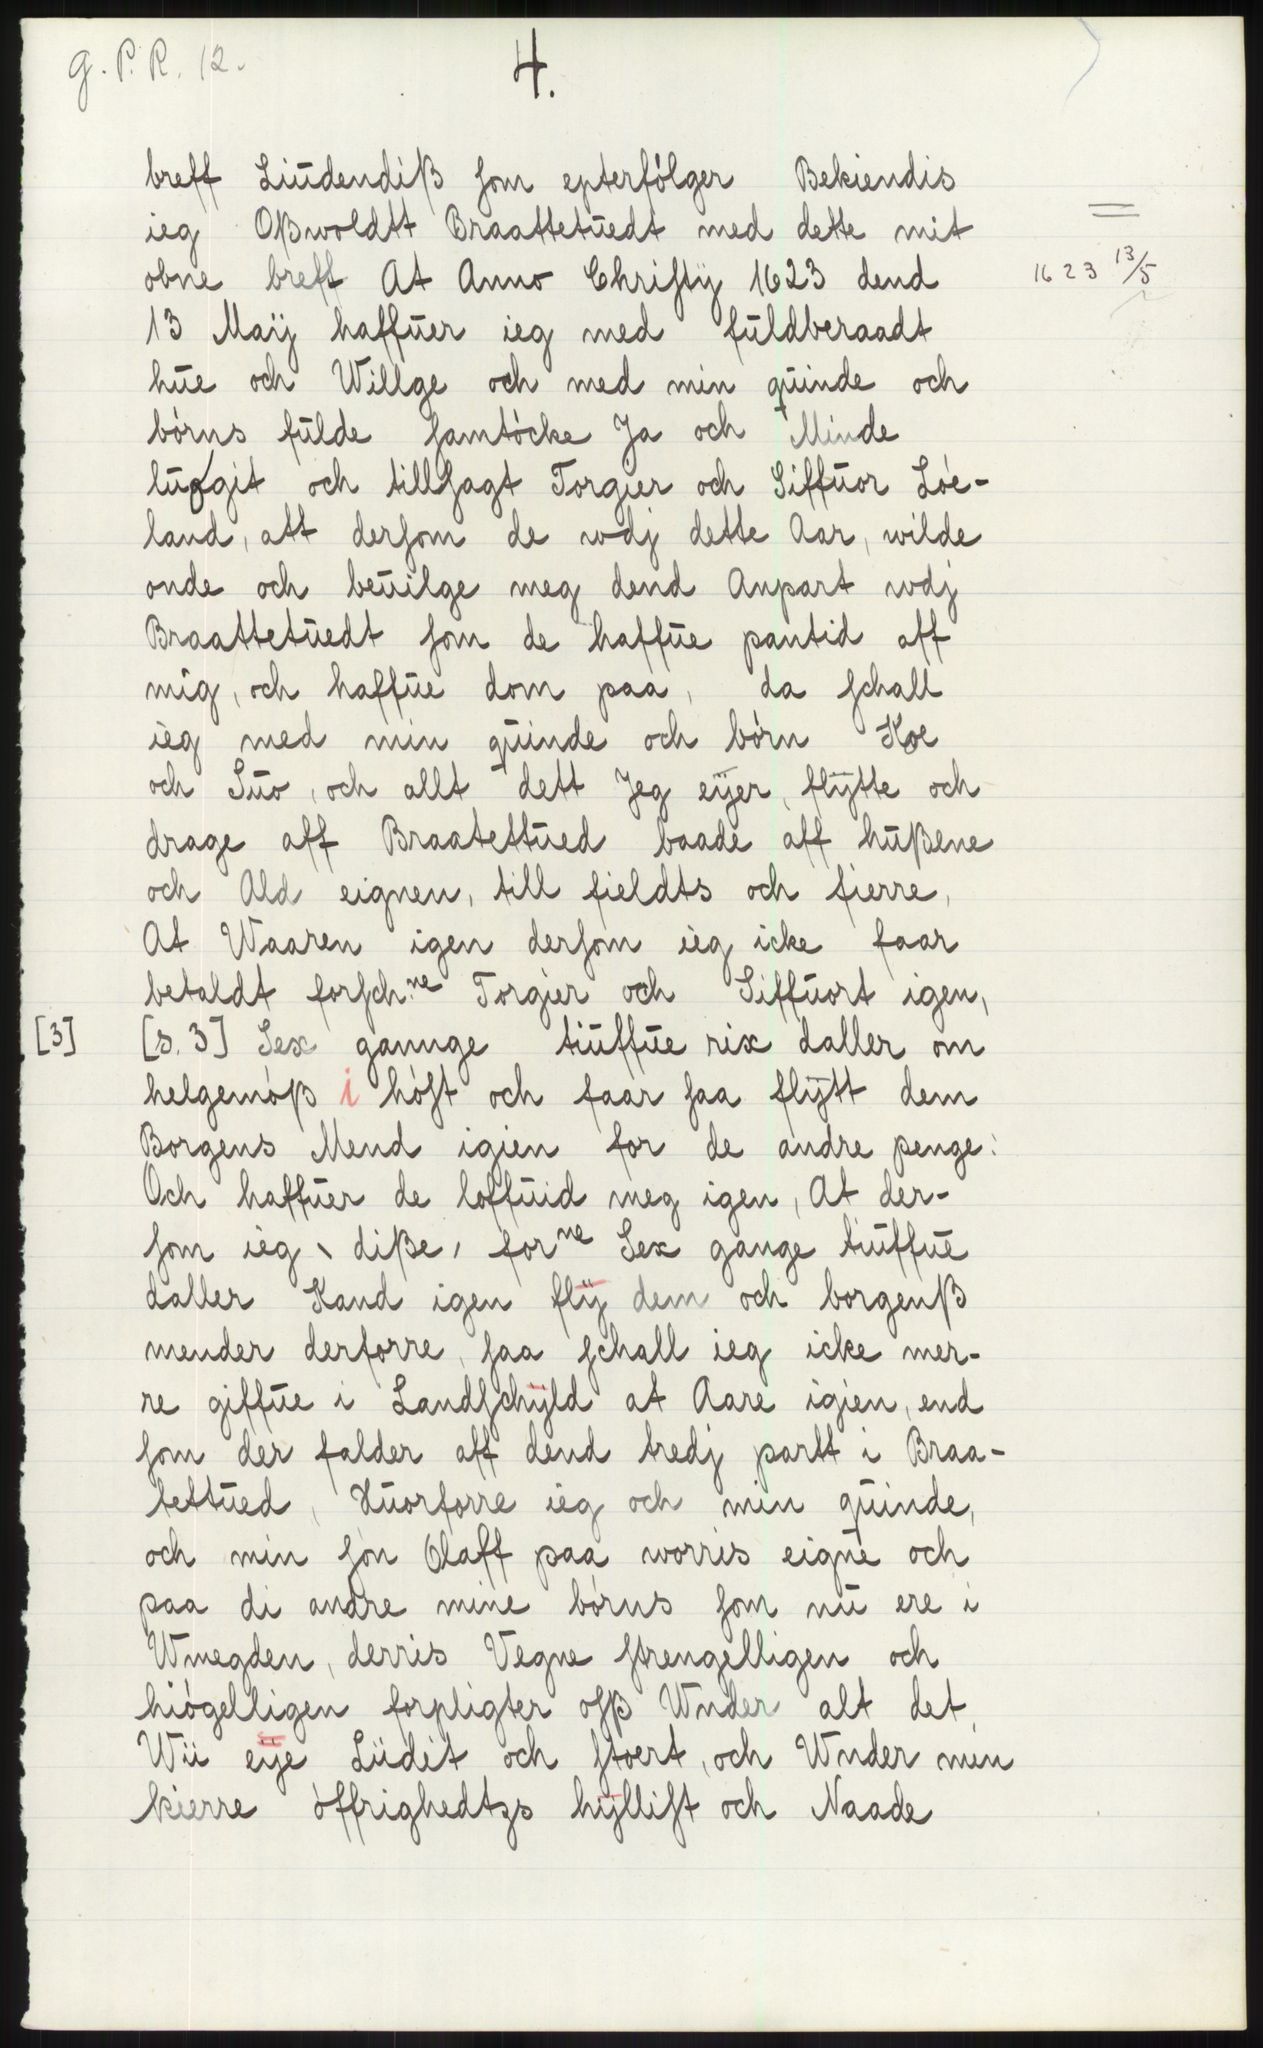 g. P. R. 12.
4.
breff Liudendiß som epterfölger Bekiendis
ieg Oßwoldtt Braattetuedt med dette mit
obne breff At Anno Christÿ 1623 dend
1623 13/5
13 Maÿ haffuer ieg med fuldberaadt
hue och Willge och med min quinde och
börns fulde samtöcke Ja och Minde
luffgit och tillsagt Torgier och Siffuor Löe-
land, att dersom de wdj dette Aar, wilde
onde och beuilge meg dend Anpart wdj
Braattetuedt som de haffue pantid aff
mig, och haffue dom paa, da schall
ieg med min quinde och börn Koe
och Suo, och allt dett Jeg eÿer, flÿtte och
drage aff Braatettued baade aff hußene
och Ald eignen, till fieldts och fierre,
At Waaren igen dersom ieg icke faar
betaldt forsch.ne Torgier och Siffuort igen,
[3] [s. 3] Sex gannge tiuffue rix daller om
helgemöß i höst och faar saa flÿtt dem
Borgens Mend igien for de andre penge:
Och haffuer de loffuid meg igen, At der-
som ieg, diße, forne Sex gange tiuffue
daller Kand igen flÿ dem och borgenß
mender derforre, saa schall ieg icke mer-
re giffue i Landschÿld at Aare igien, end
som der falder aff dend tredj partt i Braa-
tettued, Huorforre ieg och min quinde,
och min sön Olaff paa worris eigne och
paa di andre mine börns som nu ere i
Wmegden, derris Vegne strengelligen och
hiögelligen forpligter osß Wnder alt det
Wii eÿe Liidet och stoert, och Wnder min
kierre öffrighedtzs hÿllist och Naade